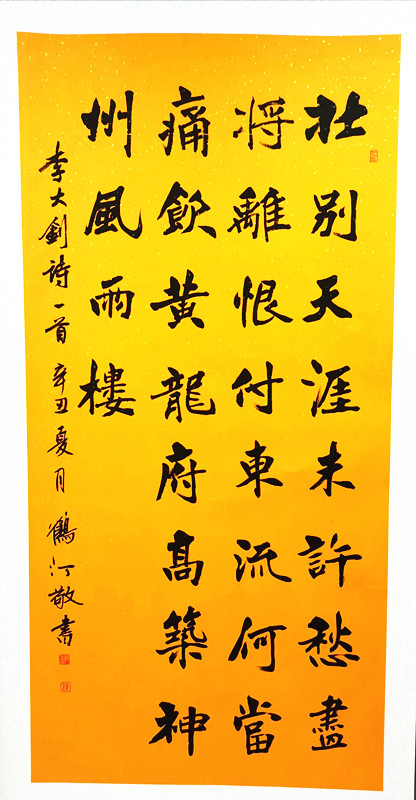 壯別天涯未許愁盡
將離恨付東流何當
痛飲黃龍府高築神
州風雨樓
李大釗詩一首 辛丑夏月 鶴汀敬書